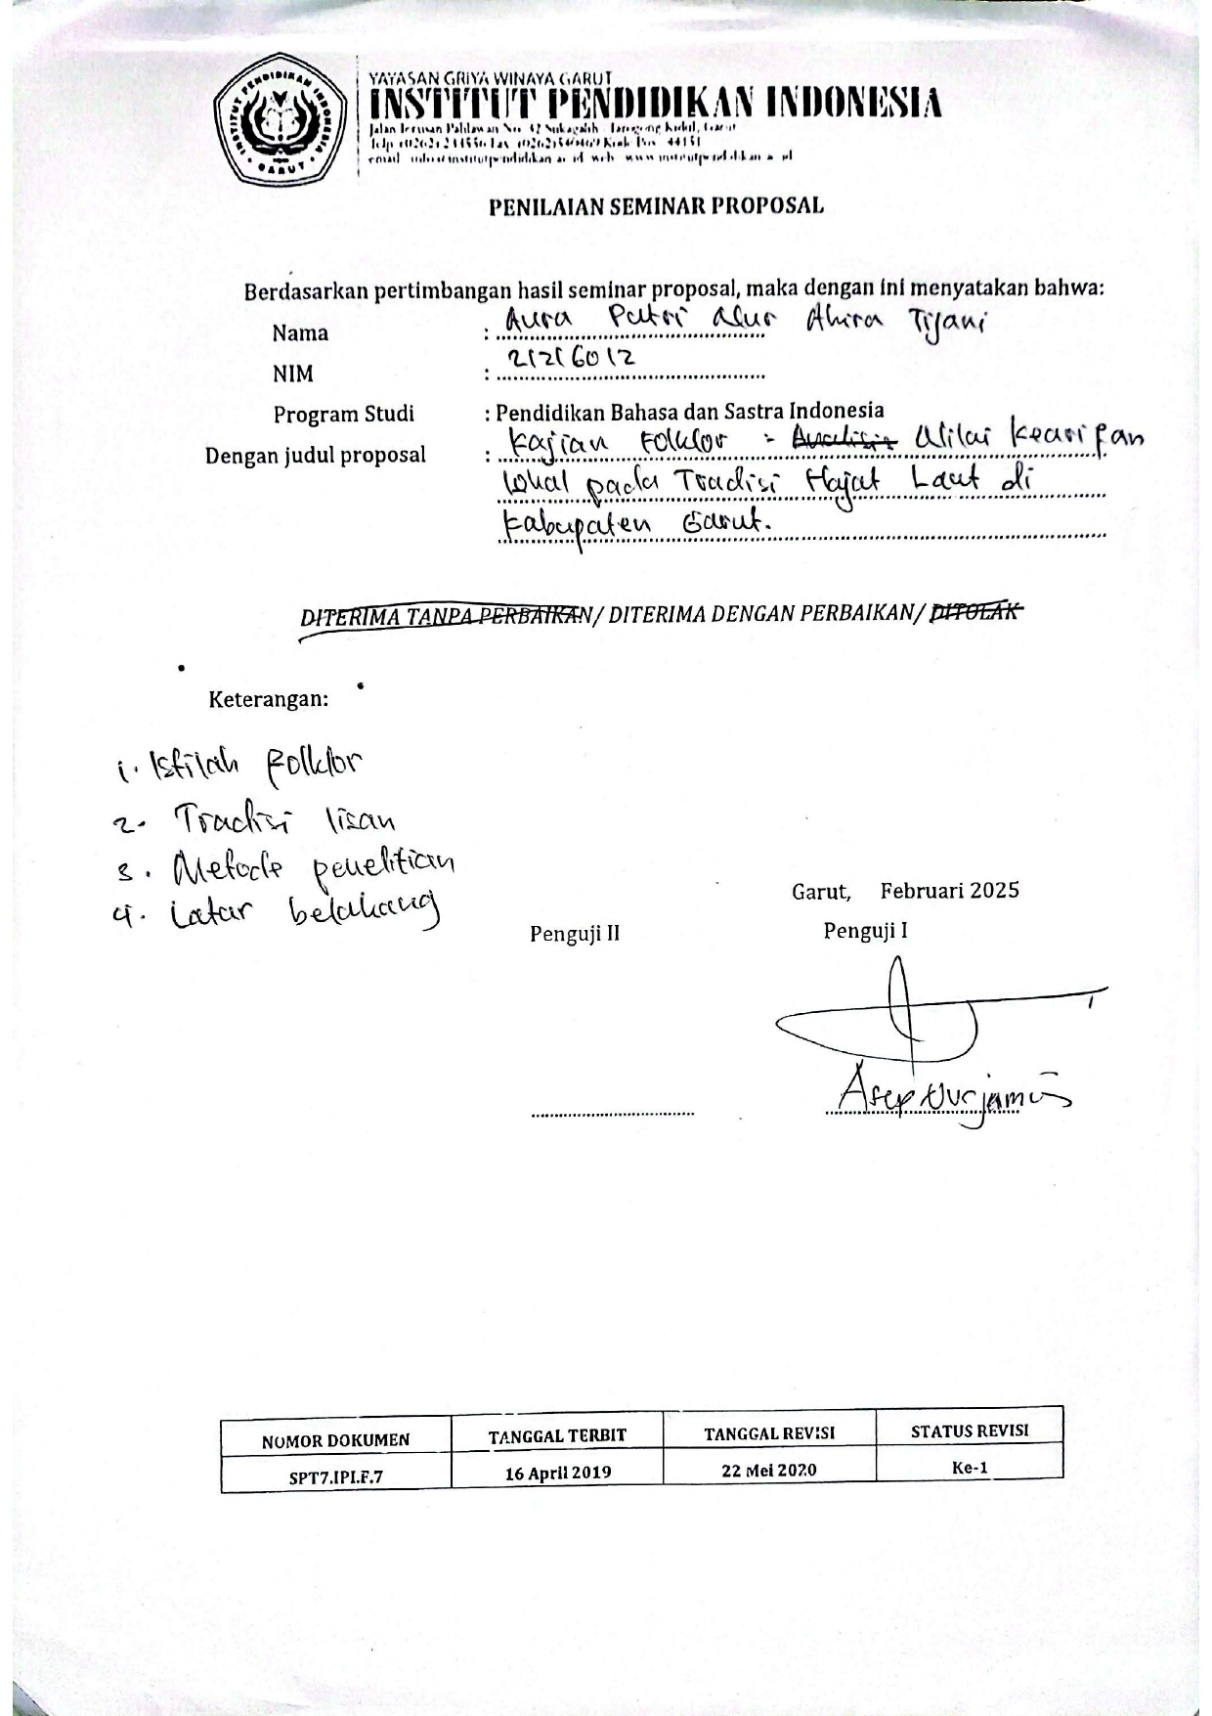 YAYASAN GRIYA WINAYA GARUT
INSTITUT PENDIDIKAN INDONESIA
Jalan Terusan Pahlawan No. 32 Sukagalih - Tarogong Kidul, Garut
INSTITUT PENDIDIKAN INDONESIA
GARUT
PENILAIAN SEMINAR PROPOSAL
Berdasarkan pertimbangan hasil seminar proposal, maka dengan ini menyatakan bahwa:
Nama : Aura Putri Nur Ahira Tijani
NIM : 21216012
Program Studi : Pendidikan Bahasa dan Sastra Indonesia
Dengan judul proposal : Kajian Folklor : Analisis Nilai Kearifan
lokal pada Tradisi Hajat Laut di
Kabupaten Garut.
DITERIMA TANPA PERBAIKAN/ DITERIMA DENGAN PERBAIKAN/ DITOLAK
Keterangan:
1. Istilah Folklor
2. Tradisi lisan
3. Metode penelitian
4. Latar belakang
Garut, Februari 2025
Penguji II Penguji I
Asep Nurjamin
NOMOR DOKUMEN TANGGAL TERBIT TANGGAL REVISI STATUS REVISI
SPT7.IPI.F.7 16 April 2019 22 Mei 2020 Ke-1